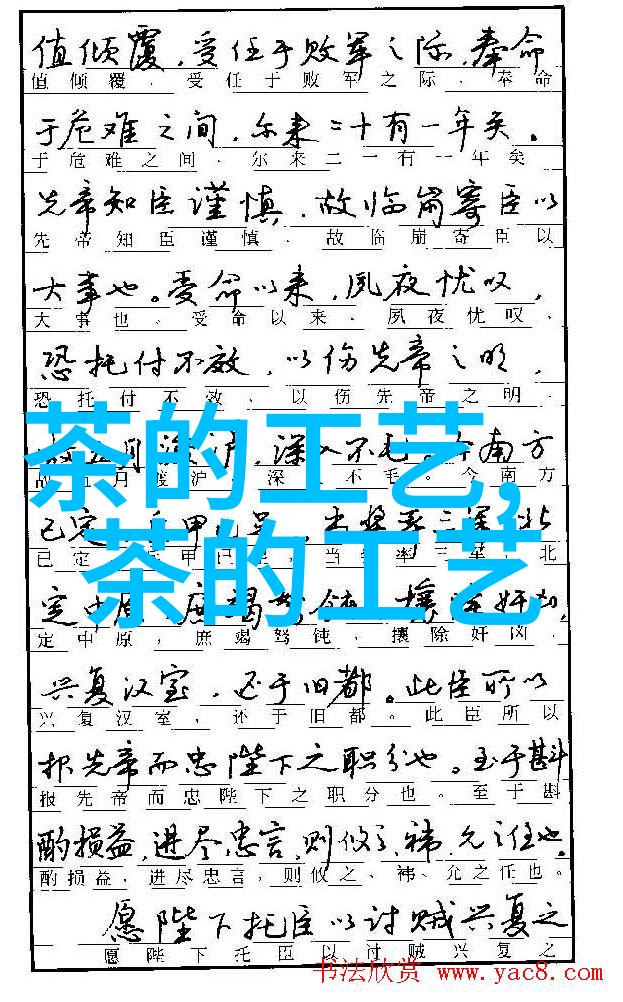 值倾覆，受任于败军之际，奉命
值倾覆，受任于败军之际，奉命
于危难之间，尔来二十有一年矣。
于危难之间，尔来二一有一年矣
先帝知臣谨慎，故临崩寄臣以
先帝知臣谨慎，故临崩寄臣以
大事也。受命以来，夙夜忧叹，
大事也。受命以来，夙夜忧叹，
恐托付不效，以伤先帝之明，
恐托付不效，以伤先帝之明，
茶的工艺，
月 泸，深入不毛。今南方
故五月渡泸，深 不毛。今南方
已定 甲 三 北
已定 甲已 当 率三军 北
茶的工艺
定中 庶竭驽钝 攘 奸凶，
定中原，庶竭驽钝，攘除奸凶，
兴复汉室，还于旧都。此臣所以
兴复汉室，还于旧都。此臣所以
报先帝而忠陛下之职分也。至于斟
报先帝而忠陛下之职分也。至于斟
酌损益，进尽忠言，则攸之、祎、允之任也。
酌损益，进尽忠言，则攸之、祎、允之任也。
愿陛下托臣以讨贼兴复之
愿陛下托臣以讨贼兴复之
书法欣赏 www.yac8.com